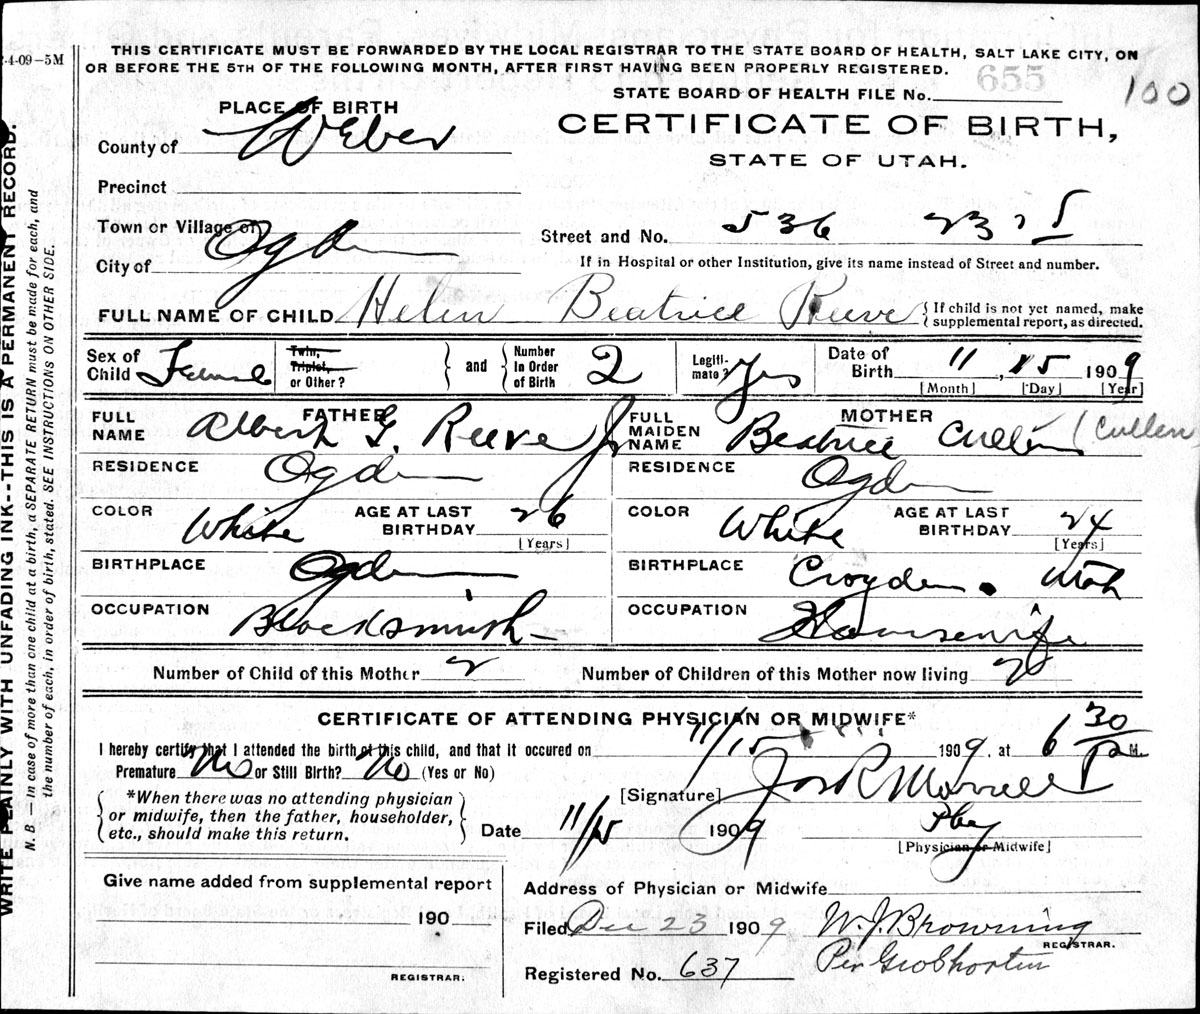 2-4-09-5M
THIS CERTIFICATE MUST BE FORWARDED BY THE LOCAL REGISTRAR TO THE STATE BOARD OF HEALTH, SALT LAKE CITY, ON
OR BEFORE THE 5TH OF THE FOLLOWING MONTH, AFTER FIRST HAVING BEEN PROPERLY REGISTERED.
655
STATE BOARD OF HEALTH FILE No. 100
PLACE OF BIRTH
CERTIFICATE OF BIRTH,
STATE OF UTAH.
County of Weber
Precinct
Town or Village of
City of Ogden
Street and No. 536 23rd St
If in Hospital or other Institution, give its name instead of Street and number.
FULL NAME OF CHILD Helen Beatrice Reeve
{ If child is not yet named, make
supplemental report, as directed.
Sex of Child Female
Twin, Triplet, or Other?
and
Number in Order of Birth 2
Legiti- mate? Yes
Date of Birth 11, 15 1909
[Month] [Day] [Year]
FATHER
FULL NAME Albert G. Reeve Jr
MOTHER
FULL MAIDEN NAME Beatrice Cullen (Cullen
RESIDENCE Ogden
RESIDENCE Ogden
COLOR White AGE AT LAST BIRTHDAY 26 [Years]
COLOR White AGE AT LAST BIRTHDAY 24 [Years]
BIRTHPLACE Ogden
BIRTHPLACE Croyden. Utah
OCCUPATION Blacksmith
OCCUPATION Housewife
Number of Child of this Mother 2
Number of Children of this Mother now living 2
CERTIFICATE OF ATTENDING PHYSICIAN OR MIDWIFE*
I hereby certify that I attended the birth of this child, and that it occured on 11/15 1909, at 6 30 P M.
Premature No or Still Birth? No (Yes or No)
*When there was no attending physician
or midwife, then the father, householder,
etc., should make this return.
[Signature] Jos R Morrell
Date 11/15 1909 Phy
[Physician or Midwife]
Give name added from supplemental report
190
REGISTRAR.
Address of Physician or Midwife
Filed Dec 23 1909 W. J. Browning
REGISTRAR.
Registered No. 637
Per Geo Shorten
WRITE PLAINLY WITH UNFADING INK--THIS IS A PERMANENT RECORD.
N. B.—In case of more than one child at a birth, a SEPARATE RETURN must be made for each, and
the number of each, in order of birth, stated. SEE INSTRUCTIONS ON OTHER SIDE.